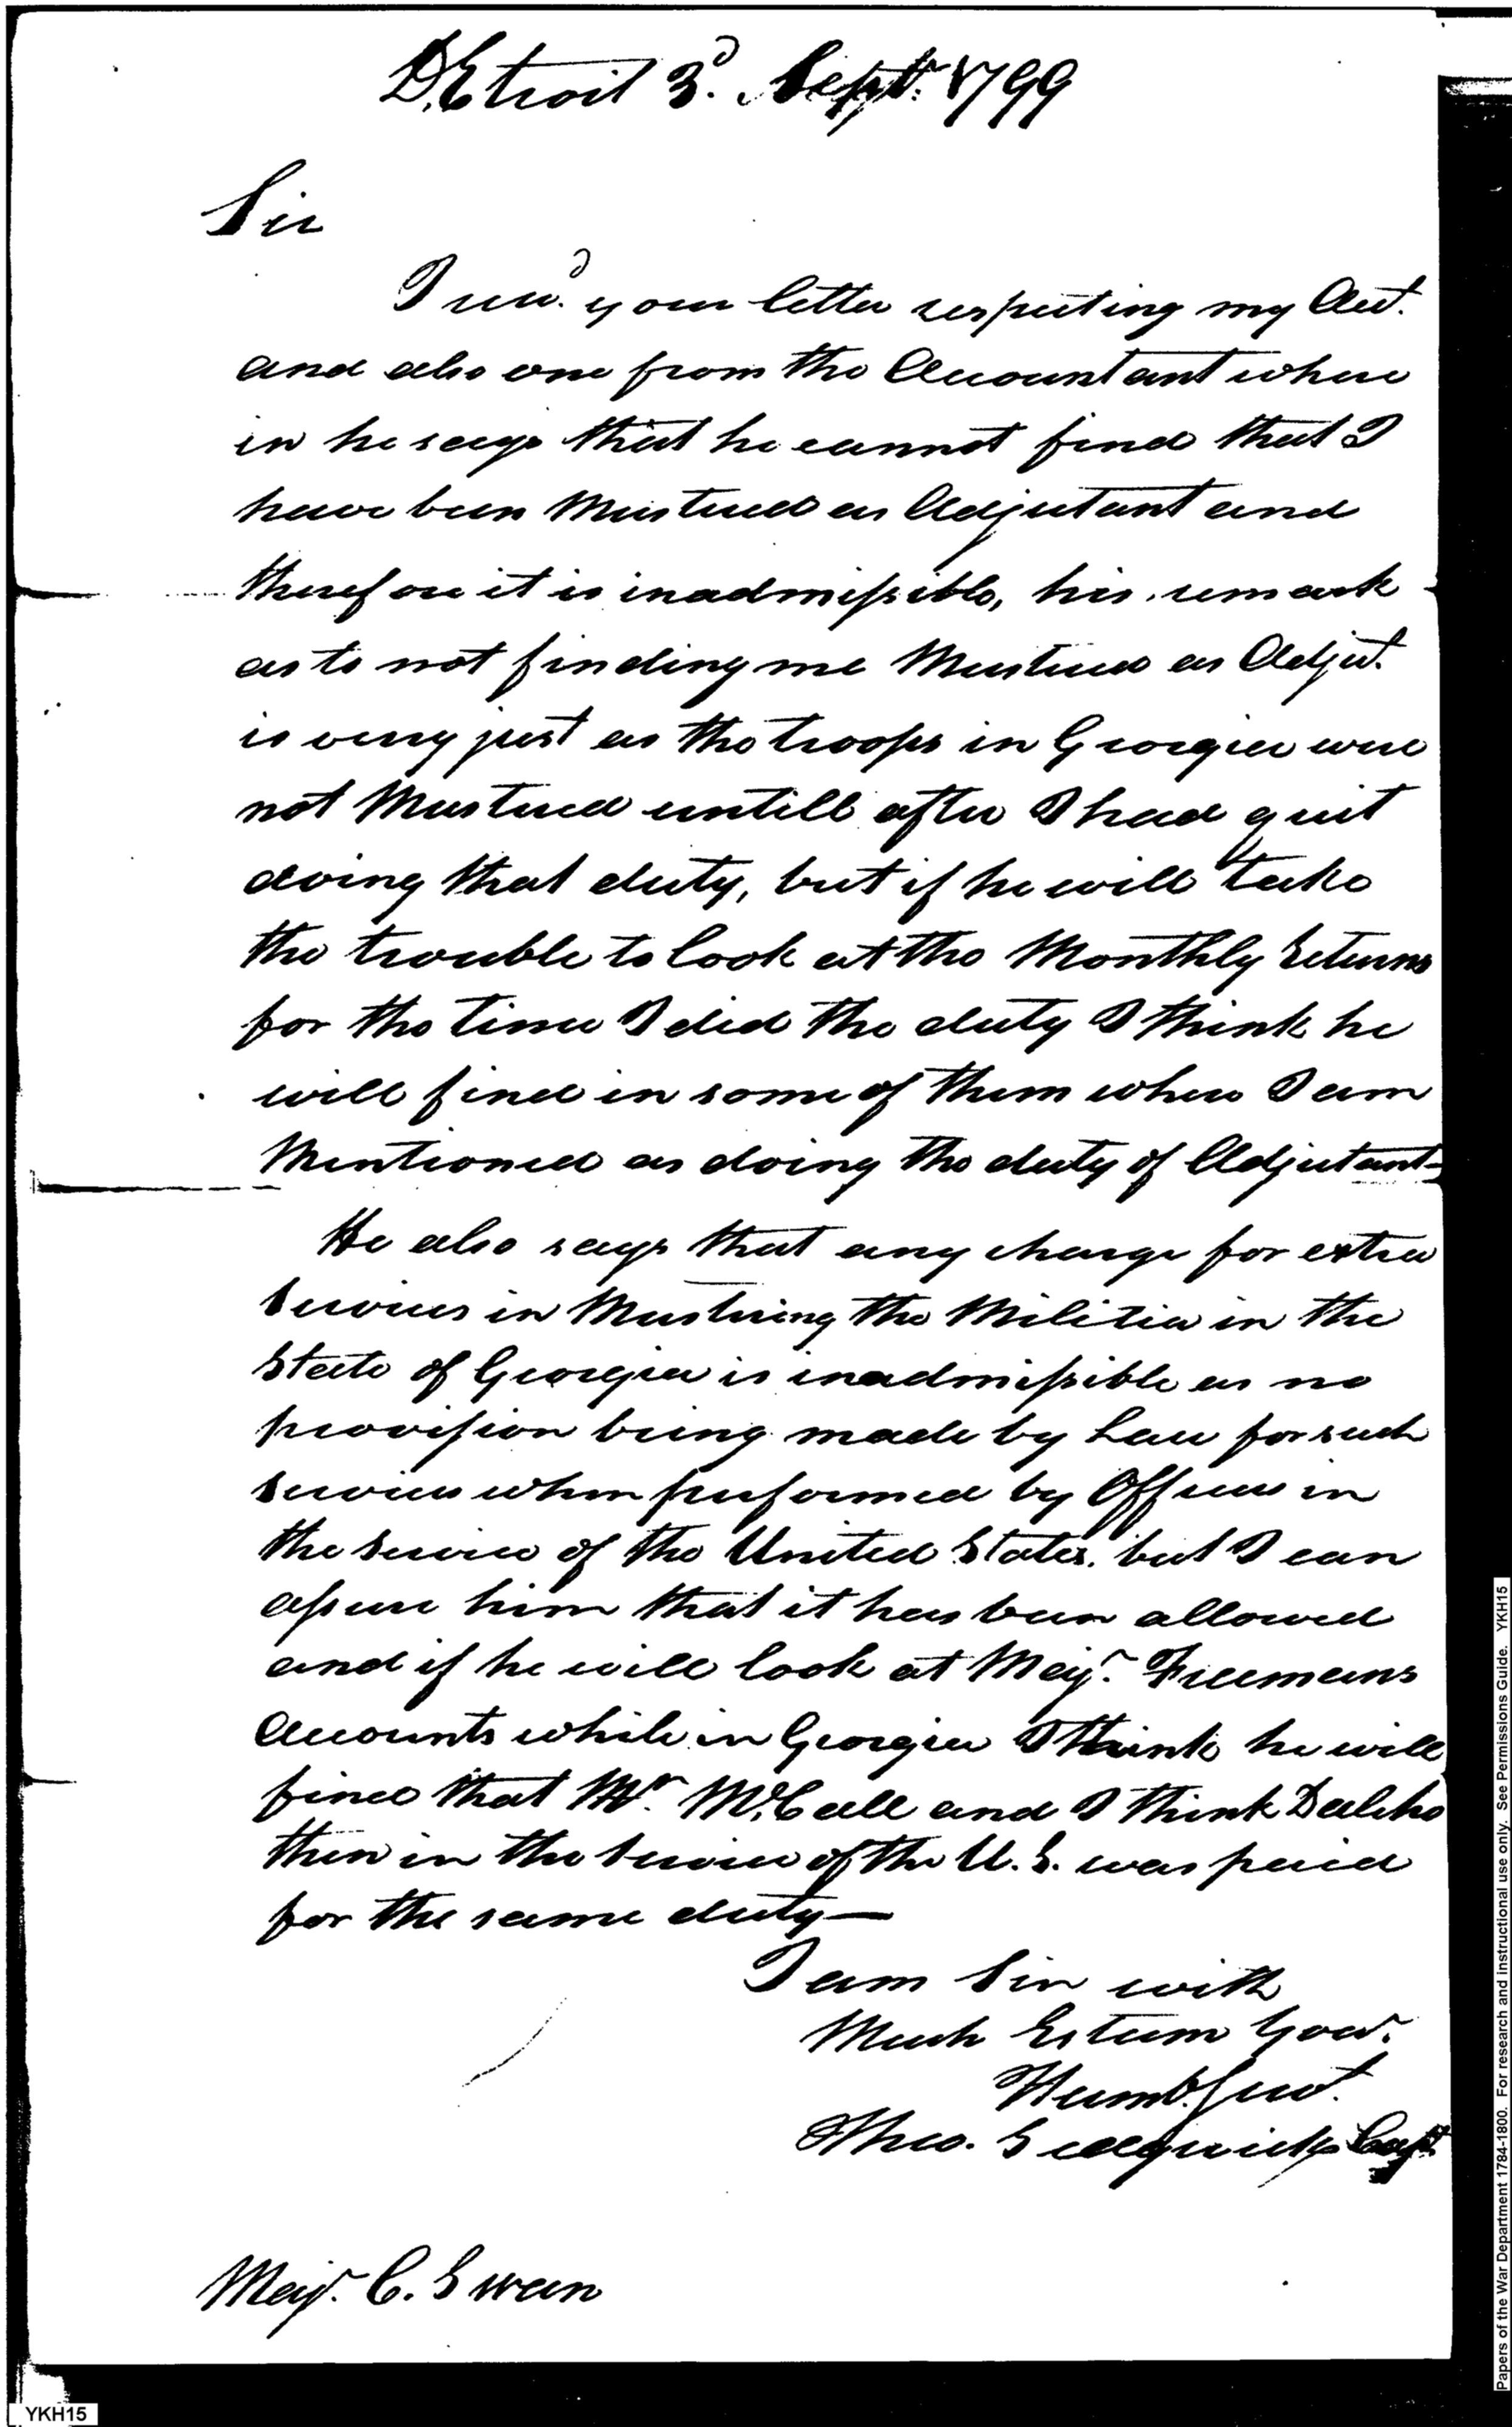 DEtroit 3d. Sept. 1799
Sir
I recd. your letter respecting my Act.
and also one from the Accountant where
in he says that he cannot find that I
have been Mustered as Adjutant and
therefore it is inadmissible, his remark
as to not finding me Mustered as Adjut.
is very just as the troops in Georgia were
not Mustered untill after I had quit
doing that duty, but if he will take
the trouble to look at the Monthly returns
for the time I did the duty I think he
will find in some of them where I am
Mentioned as doing the duty of Adjutant-
He also says that any charge for extra
Services in Mustering the Militia in the
State of Georgia is inadmissible as no
provision being made by Law for such
services when performed by Officers in
the Service of the United States. but I can
assure him that it has been allowed
and if he will look at Majr. Freemans
Accounts while in Georgia I think he will
find that Mr. McCall and I think
then in the Service of the U.S. was paid
for the same duty—
I am Sir with
Much Esteem Your.
Humb. Servt.
Theo. Sedgwick Capt
Majr. C. Swan
YKH15
Papers of the War Department 1784-1800. For research and instructional use only. See Permissions Guide. YKH15